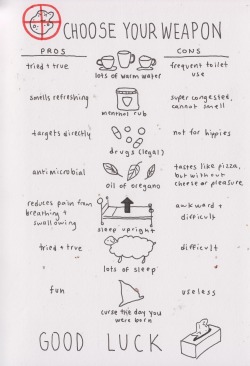 CHOOSE YOUR WEAPON
PROS
CONS
tried + true
lots of warm water
frequent toilet
use
smells refreshing
menthol rub
super congested,
cannot smell
targets directly
drugs (legal)
not for hippies
antimicrobial
oil of oregano
tastes like pizza,
but without
cheese or pleasure
reduces pain from
breathing +
swallowing
sleep upright
awkward +
difficult
tried + true
lots of sleep
difficult
fun
curse the day you
were born
useless
GOOD LUCK